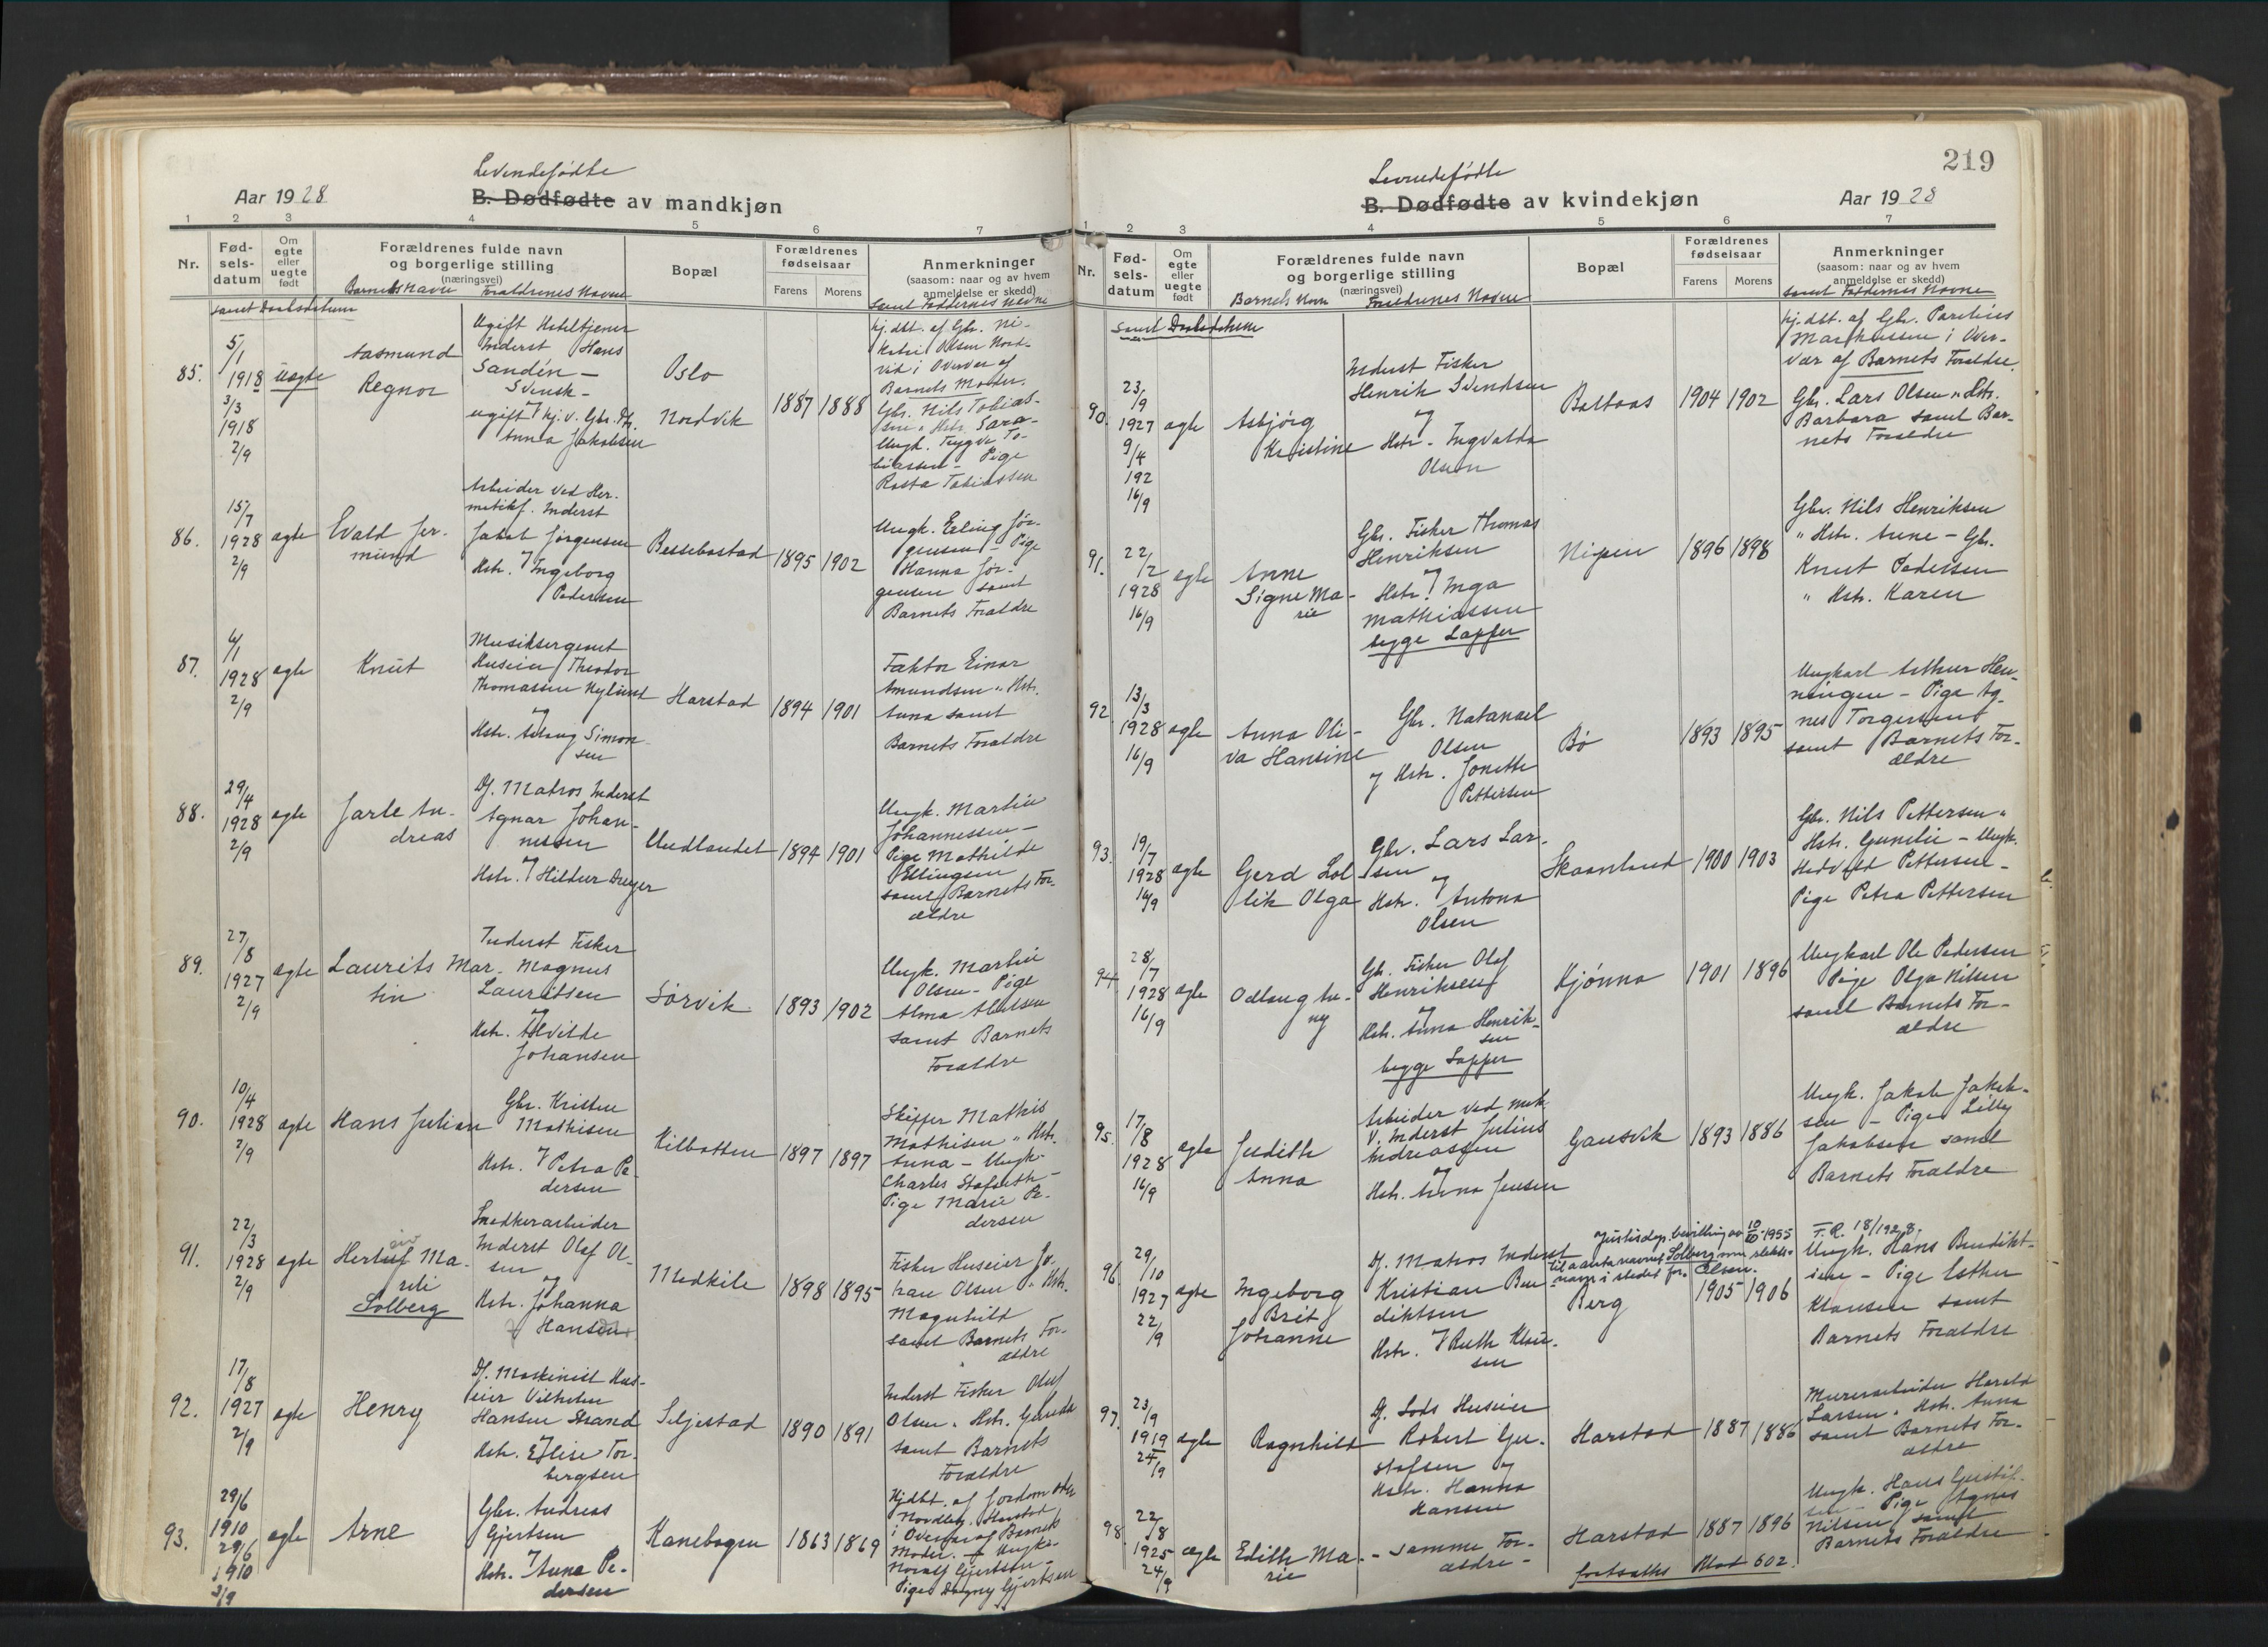 Levendefødte
Aar 1928
B. Dødfødte av mandkjøn
1 2 3 4 5 6 7
Nr.
Fød-
sels-
datum
Om
egte
eller
uegte
født
Forældrenes fulde navn
og borgerlige stilling
(næringsvei)
Barnets Navn Forældrenes Navne
Bopæl
Forældrenes
fødselsaar
Farens Morens
Anmerkninger
(saasom: naar og av hvem
anmeldelse er skedd)
samt Faddernes Navne
samt Daabsdatum
85.
5/1
1918
3/3
1918
2/9
uægte
Aasmund
Regnor
Ugift Hoteltjener
Inderst Hans
Sandén –
Svensk –
ugift
Anna Jakobsen
Oslo
Nordvik
1887 1888
hj. dbt. af Gbr. Ni-
Olsen Nord-
vik i Overvær af
Barnets Moder.
Gbr. Nils Tobias-
sen " Hstr. Sara –
Ungk. Trygve To-
biassen – Pige
Tobiassen
86.
15/7
1928
2/9
ægte
Evald Jer-
mund
Arbeider ved Her-
metikf. Inderst
Jakob Jørgensen
og
Hstr. Ingeborg
Pedersen
Bessebostad
1895 1902
Ungk. Erling Jør-
gensen – Pige
Hanna Jør-
gensen samt
Barnets Forældre
87.
1928
2/9
ægte
Knut
Musiksergeant
Huseier Theodor
Thomassen Nylund
og
Hstr. Aslaug Simon-
sen
Harstad
1894 1901
Faktor Einar
Amundsen " Hstr.
Anna samt
Barnets Forældre
88.
29/4
1928
2/9
ægte
Jarle An-
dreas
Df. Matros Inderst
Agnar Johan-
nessen
og
Hstr. Hildur Dreyer
Undlandet
1894 1901
Ungk. Martin
Johannessen –
Pige Mathilde
Ellingsen
samt Barnets For-
ældre
89.
27/8
1927
2/9
ægte
Laurits Mar-
tin
Inderst Fisker
Magnus
Lauritsen
og
Hstr. Alvilde
Johansen
Sørvik
1893 1902
Ungk. Martin
Olsen – Pige
Alma
samt Barnets
Forældre
90.
10/4
1928
2/9
ægte
Hans Julian
Gbr. Kristen
Mathisen
og
Hstr. Petra Pe-
dersen
Kilbotten
1897 1897
Skipper Mathis
Mathisen " Hstr.
Anna – Ungk.
Charles
Pige Marie Pe-
dersen
91.
22/3
1928
2/9
ægte
Herluf Ma-
reli
Solberg
Snedkerarbeider
Inderst Olaf Ol-
sen
og
Hstr. Johanna
Hansen
Medkile
1898 1895
Fisker Huseier Jo-
han Olsen " Hstr.
Magnhild
samt Barnets For-
ældre
92.
17/8
1927
2/9
ægte
Henry
Df. Maskinist Hus-
eier Vilhelm
Hansen Strand
og
Hstr. Elise Tor-
bergsen
Seljestad
1890 1891
Inderst Fisker Oluf
Olsen " Hstr.
samt Barnets
Forældre
93.
29/6
1910
29/6
1910
2/9
ægte
Arne
Gbr. Andreas
Gjertsen
og
Hstr. Anna Pe-
dersen
Kanebogen
1863 1869
Hjdbt. af Jordmoder
Harstad
i Overvær af Barnets
Moder. – Ungk.
Gjertsen –
Pige Dagny Gjertsen
219
Levendefødte
B. Dødfødte av kvindekjøn
Aar 1928
1 2 3 4 5 6 7
Nr.
Fød-
sels-
datum
Om
egte
eller
uegte
født
Forældrenes fulde navn
og borgerlige stilling
(næringsvei)
Barnets Navn Forældrenes Navne
Bopæl
Forældrenes
fødselsaar
Farens Morens
Anmerkninger
(saasom: naar og av hvem
anmeldelse er skedd)
samt Faddernes Navne
samt Daabsdatum
90.
23/9
1927
9/4
192
16/9
ægte
Asbjørg
Kristine
Inderst Fisker
Henrik Svendsen
og
Hstr. Ingvalda
Olsen
1904 1902
hj. dbt. af Gbr. Parelius
Markussen i Over-
vær af Barnets Forældre.
Gbr. Lars Olsen " Hstr.
Barbara samt Bar-
nets Forældre
91.
22/2
1928
16/9
ægte
Anne
Signe Ma-
rie
Gbr. Fisker Thomas
Henriksen
og
Hstr. Inga
Mathiassen
begge Lapper
Nipen
1896 1898
Gbr. Nils Henriksen
" Hstr. Anne – Gbr.
Knut Pedersen
" Hstr. Karen
92.
13/3
1928
16/9
ægte
Anna Oli-
va Hansine
Gbr. Natanael
Olsen
og Hstr. Jonette
Pettersen
Bø
1893 1895
Ungkarl Arthur Hen-
ningsen – Pige Ag-
nes Torgersen
samt Barnets For-
ældre
93.
19/7
1928
16/9
ægte
Gerd Lol-
lik Olga
Gbr. Lars Lar-
sen
og
Hstr. Antona
Olsen
Skaanland
1900 1903
Gbr. Nils Pettersen "
Hstr. Gunelie – Ungk.
Hedvald Pettersen –
Pige Petra Pettersen
94.
28/7
1928
16/9
ægte
Odlaug An-
ny
Gbr. Fisker Olaf
Henriksen
og
Hstr. Anna Henrik-
sen
begge Lapper
Kjønna
1901 1896
Ungkarl Ole Pedersen
Pige Olga Nilsen
samt Barnets For-
ældre
95.
17/8
1928
16/9
ægte
Judith
Anna
Arbeider ved mek.
V. Inderst Julius
Andreassen
og
Hstr. Anna Jensen
Gausvik
1893 1886
Ungk. Jakob Jakob-
sen – Pige Lilly
Jakobsen samt
Barnets Forældre
96.
29/10
1927
22/9
ægte
Ingeborg
Brit
Johanne
Df. Matros Inderst
Kristian Ben-
diktsen
og
Hstr. Ruth Klau-
sen
Justisdep. bevilling av 10/10-1955
til å anta navnet Solberg som slekts-
navn i stedet for Olsen.
Berg
1905 1906
F.R. 18/1928.
Ungk. Hans Bendikt-
sen – Pige Esther
Klausen samt
Barnets Forældre
97.
23/9
1919
24/9
ægte
Ragnhild
Df. Lods Huseier
Robert Gu-
stafsen og
Hstr. Hanna
Hansen
Harstad
1887 1886
Murerarbeider Harald
Larsen " Hstr. Anna
samt Barnets For-
ældre
98.
22/8
1925
24/9
ægte
Edith Ma-
rie
– samme For-
ældre –
Harstad
1887 1896
Ungk. Hans Gustaf-
sen – Pige Agnes
Nilsen samt
Barnets Forældre
fortsættes Blad 602.